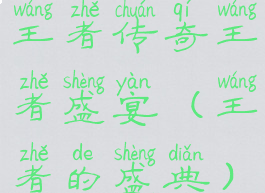 wáng zhě chuán qí wáng
王者传奇王
zhě shèng yàn wáng
者盛宴（王
zhě de shèng diǎn
者的盛典）